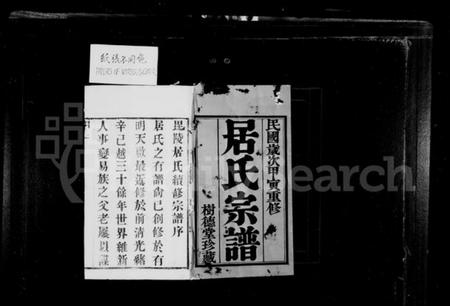 紙張不同色
PAPERS OF VARIOUS COLORS
民國歲次甲寅重修
居氏宗譜
樹德堂珍藏
毘陵居氏續修宗譜序
居氏之有譜尚已創修於有
明天啟最近修於前清光緒
辛巳越三十餘年世界維新
人事變易族之父老屢以譜